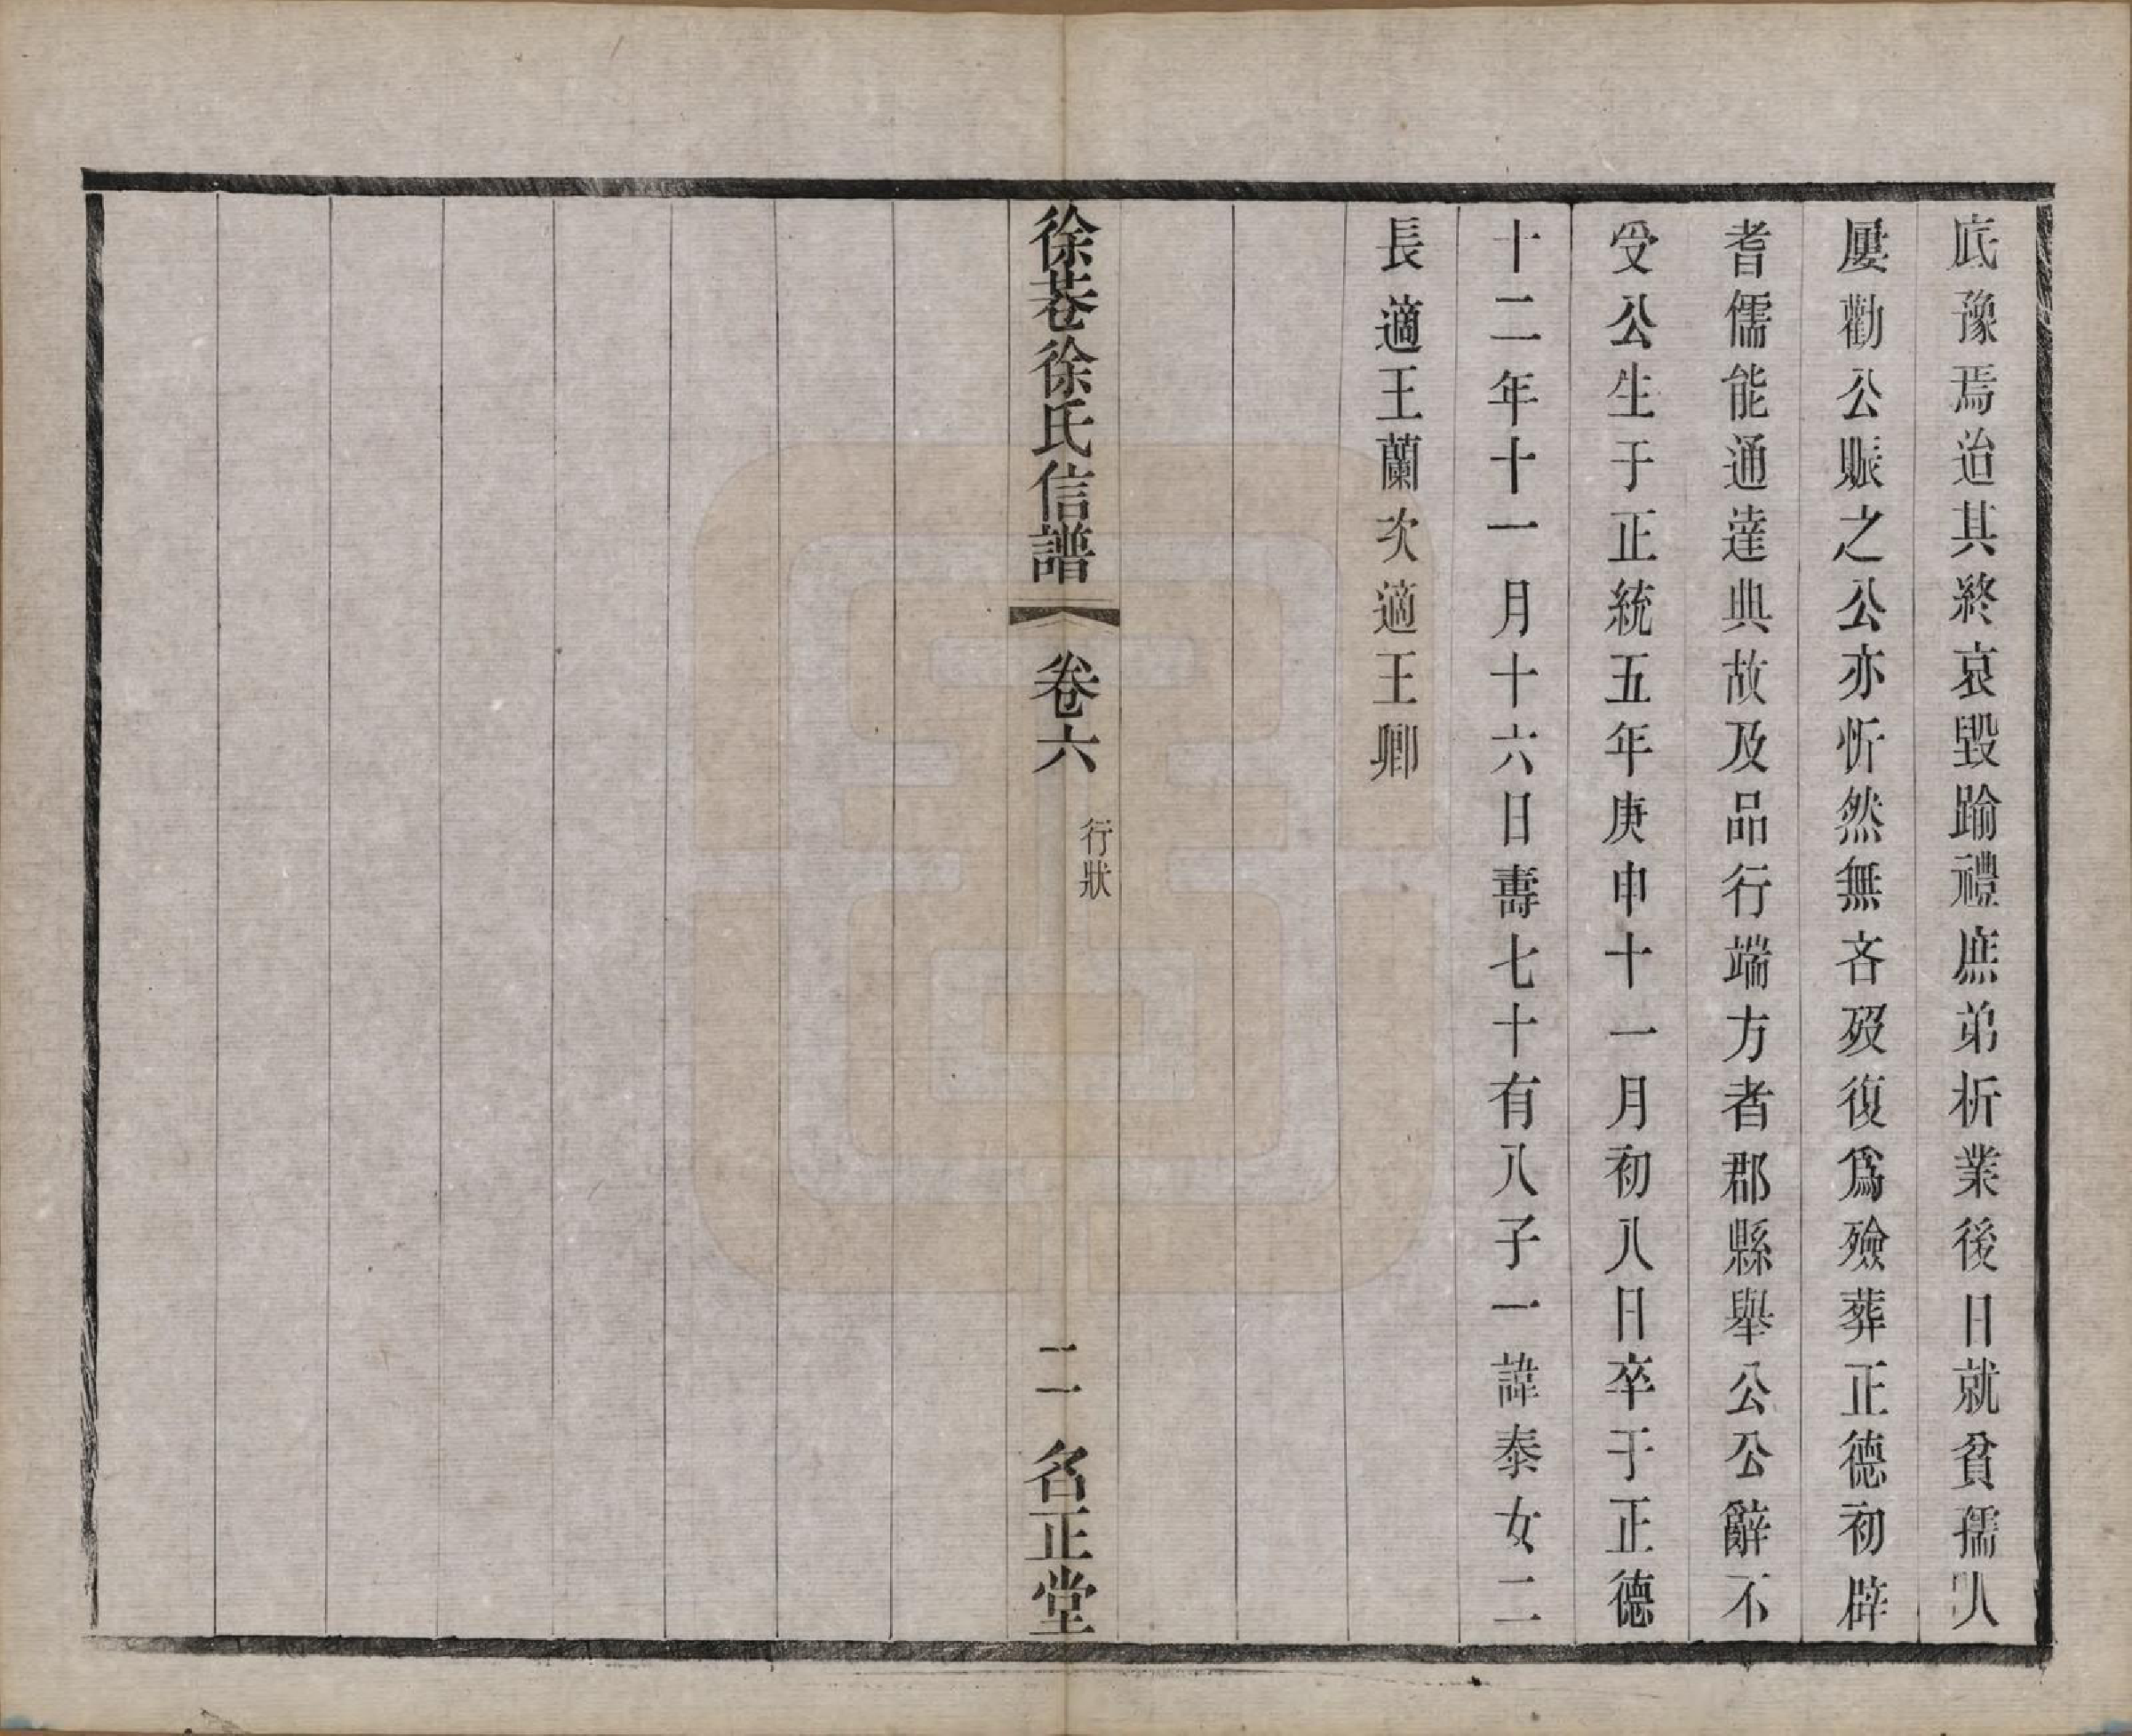 底豫焉迨其終哀毀踰禮庶弟析業後日就貧孺人
屢勸公賑之公亦忻然無吝歿復爲殮葬正德初辟
耆儒能通達典故及品行端方者郡縣舉公公辭不
受公生于正統五年庚申十一月初八日卒于正德
十二年十一月十六日壽七十有八子一諱泰女二
長適王蘭次適王卿
徐巷徐氏信譜 卷六 行狀 二 名正堂